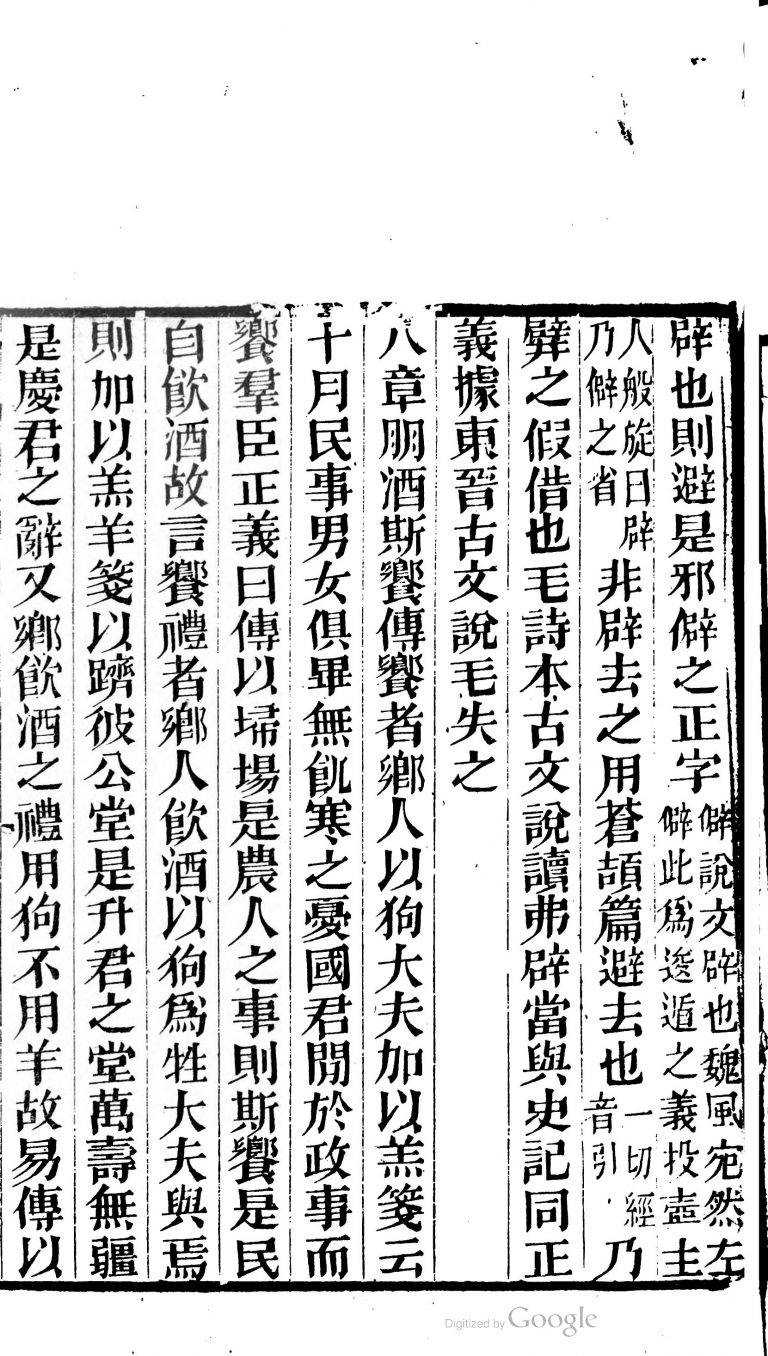 辟也則避是邪僻之正字僻說文辟也魏風宛然左僻此爲逡遁之義投壺主
人般旋曰辟乃僻之省非辟去之用蒼頡篇避去也一切經音引乃
躄之假借也毛詩本古文說讀弗辟當與史記同正
義據東晉古文說毛失之
八章朋酒斯饗傳饗者鄉人以狗大夫加以羔箋云
十月民事男女俱畢無飢寒之憂國君閒於政事而
饗羣臣正義曰傳以埽場是農人之事則斯饗是民
自飮酒故言饗禮者鄉人飮酒以狗爲牲大夫與焉
則加以羔羊箋以躋彼公堂是升君之堂萬壽無疆
是慶君之辭又鄉飮酒之禮用狗不用羊故易傳以
Digitized by Google